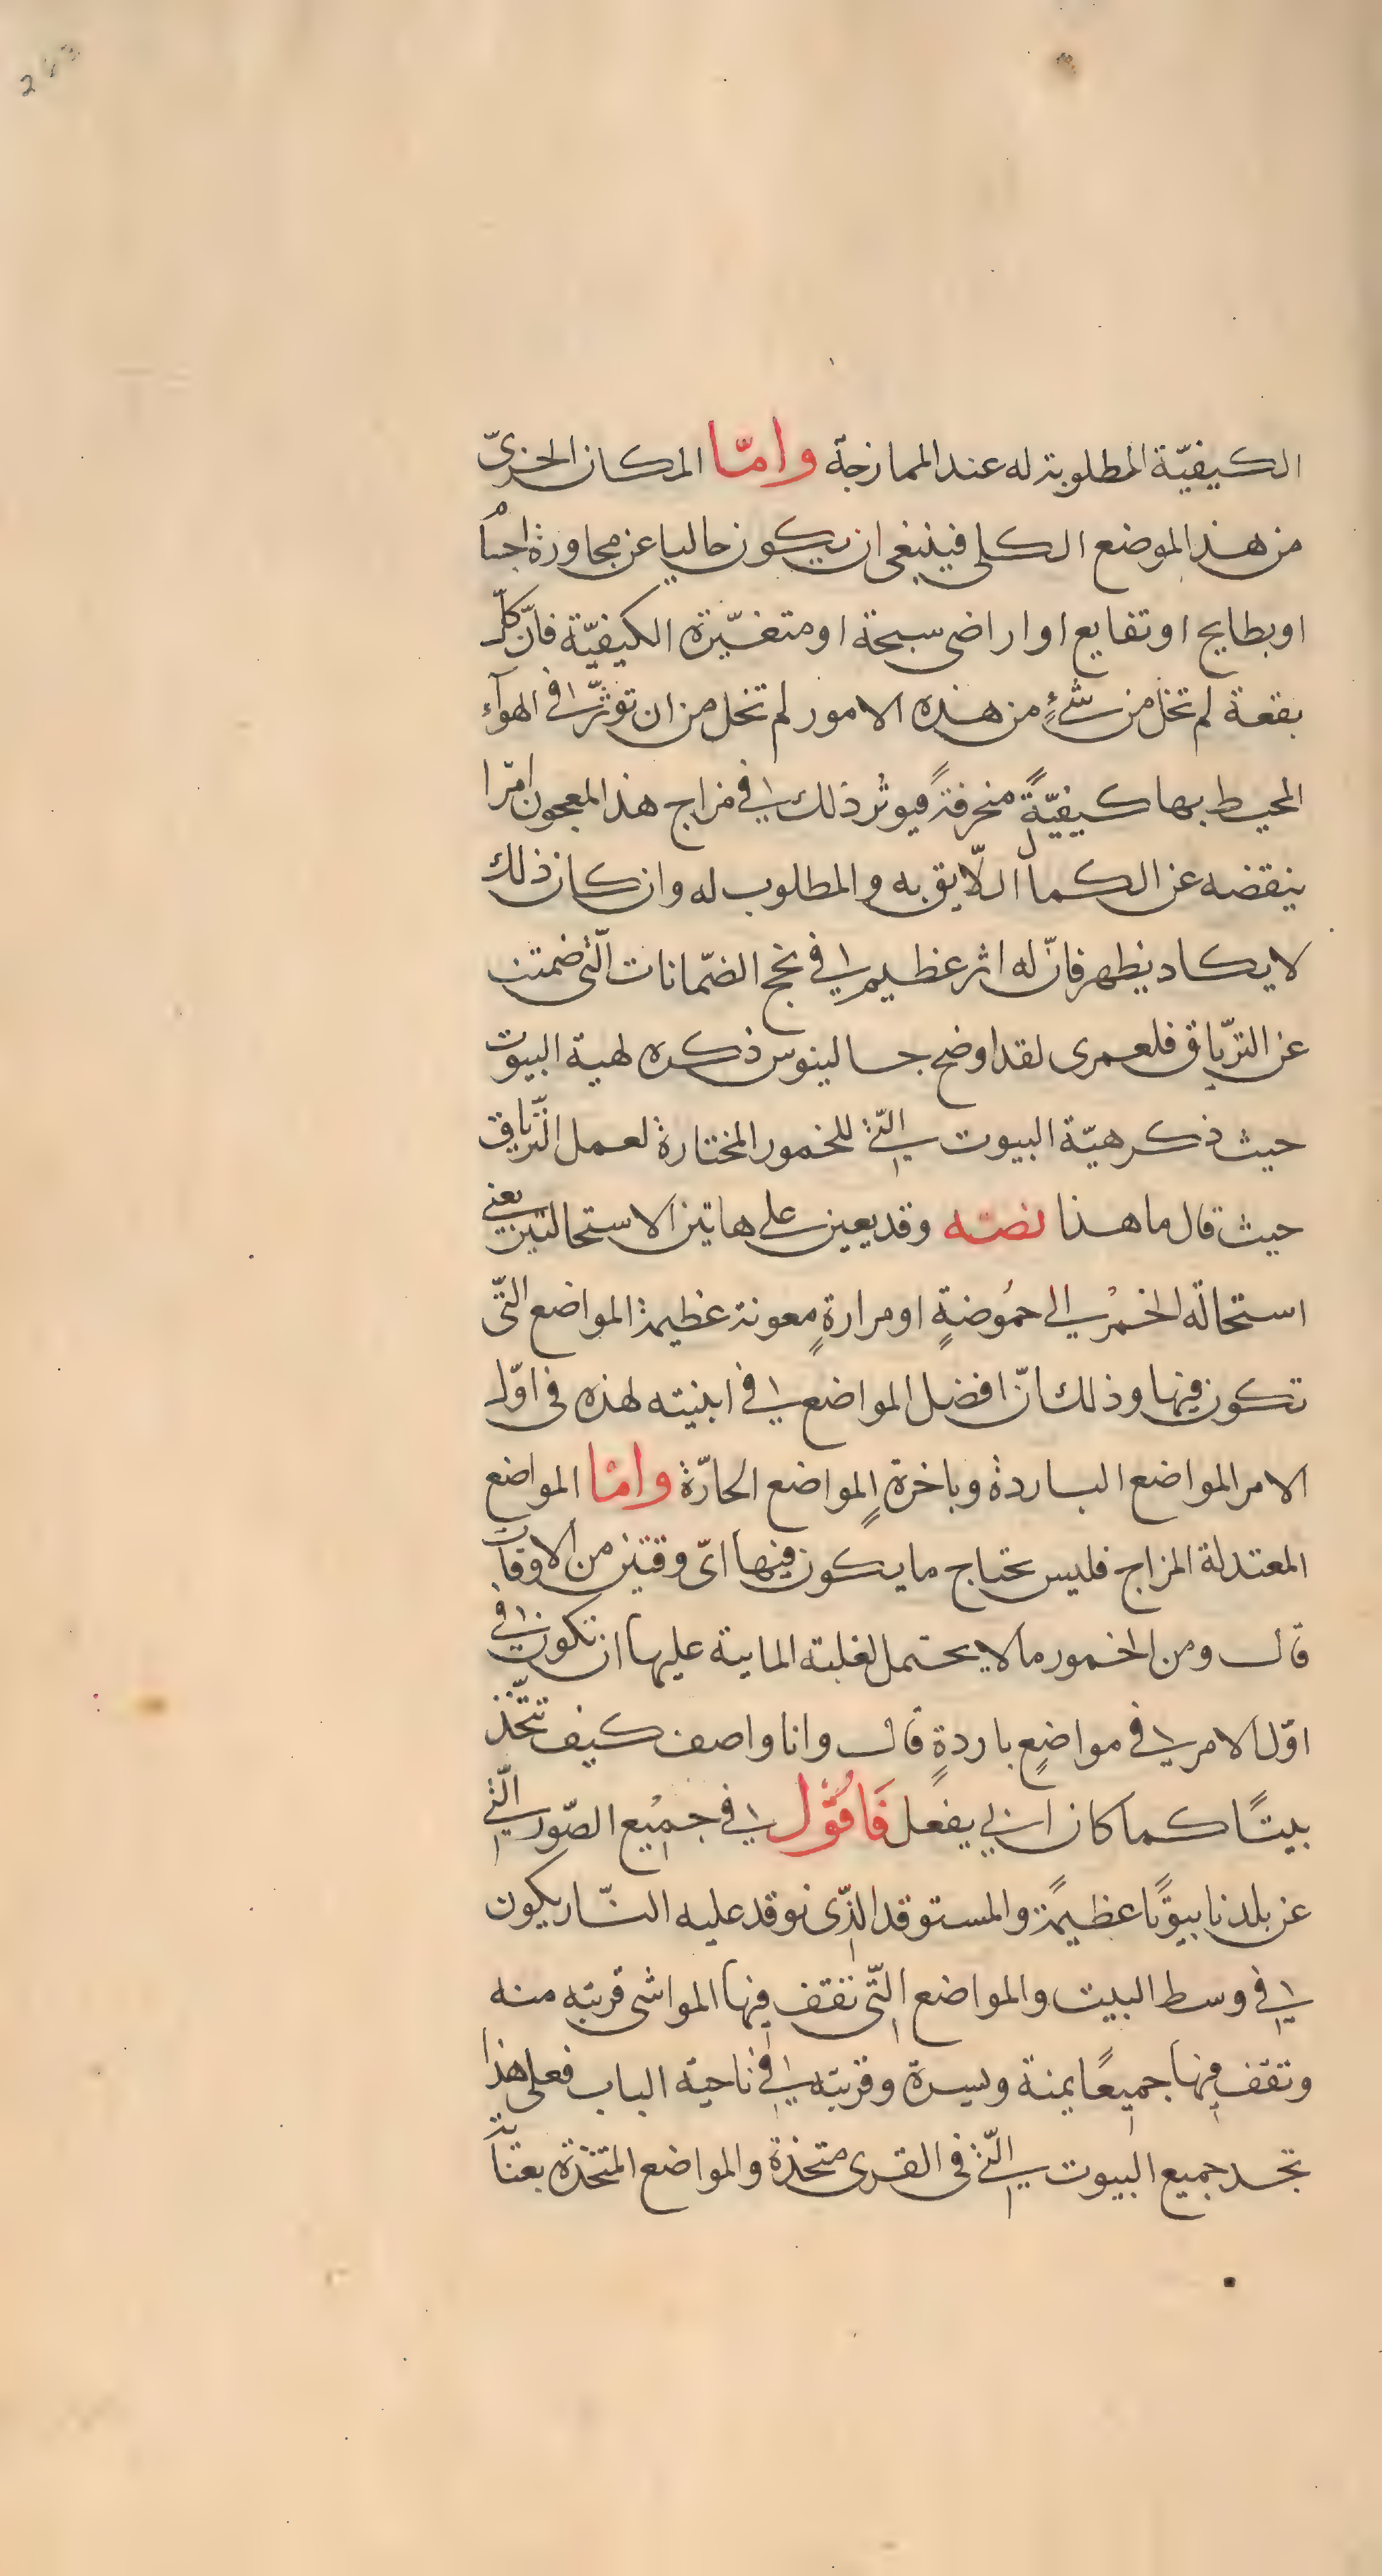 الكيفيّة المطلوبة له عند الممازجة وامّا المكان الجزىّ
من هذا الموضع الكلى فينبغى ان يكون خاليا عن مجاورة اجسام
او بطايح او تفايع او اراضى سبخة او متغيّرة الكيفيّة فانّ كلّ
بقعة لم تخل من شئٍ من هذه الامور لم تخل من ان توثّر فى الهوآء
المحيط بها كيفيّةً منحرفةً فيوثر ذلك فى مزاج هذا المعجون امرًا
ينقضه عن الكمال اللّايق به والمطلوب له وان كان ذلك
لا يكاد يظهر فانّ له اثر عظيم فى نجح الضّمانات الّتى ضمنت
عن التّرياق فلعمرى لقد اوضح جالينوس ذكره لهية البيوت
حيث ذكر هيّة البيوت الّتى للخمور المختارة لعمل التّرياق
حيث قال ما هذا نصّه وقد يعين على هاتين الاستحالتين يعنى
استحالة الخمر الى حمُوضةٍ او مرارةٍ معونة عظيمة المواضع الّتى
تكون فيها وذلك انّ افضل المواضع فى ابنيته لهذه فى اوّل
الامر المواضع الباردة وباخرة المواضع الحارّة وامّا المواضع
المعتدلة المزاج فليس تحتاج ما يكون فيها اىّ وقتين من الاوقات
قال ومن الخمور ما لا يحتمل لغلبة المايية عليها ان تكون فى
اوّل الامر فى مواضعٍ باردةٍ قال وانا واصف كيف تتّخذ
بيتًا كما كان ابى يفعل فَاقُول فى جميع الصّور الّتى
عن بلدنا بيوتًا عظيمةً والمستوقد الّذى نوقد عليه النّار يكون
فى وسط البيت والمواضع الّتى تقف فيها المواشى قريبة منه
وتقف فيها جميعًا يمنة ويسرة وقريبة فى ناحية الباب فعلى هذا
تجد جميع البيوت الّتى فى القرى متخذة والمواضع المتخذة بعناية